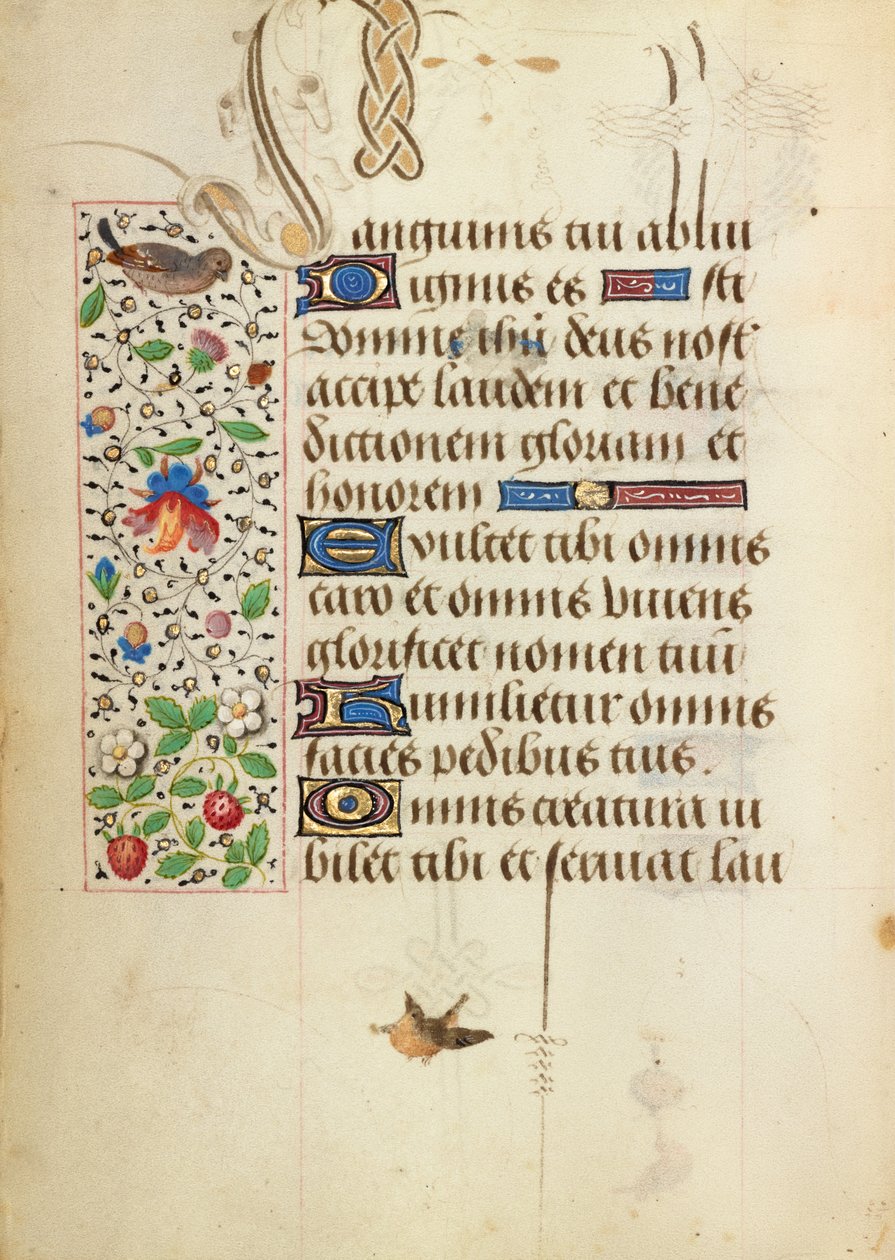 Sanguinis tui ablui
Dignus es sti
Domine ihū deus nost'
accipe laudem et bene
dictionem gloriam et
honorem
Exultet tibi omnis
caro et omnis viuens
glorificet nomen tuū
Humilietur omnis
facies pedibus tuis.
Omnis creatura iu
bilet tibi et seruiat lau